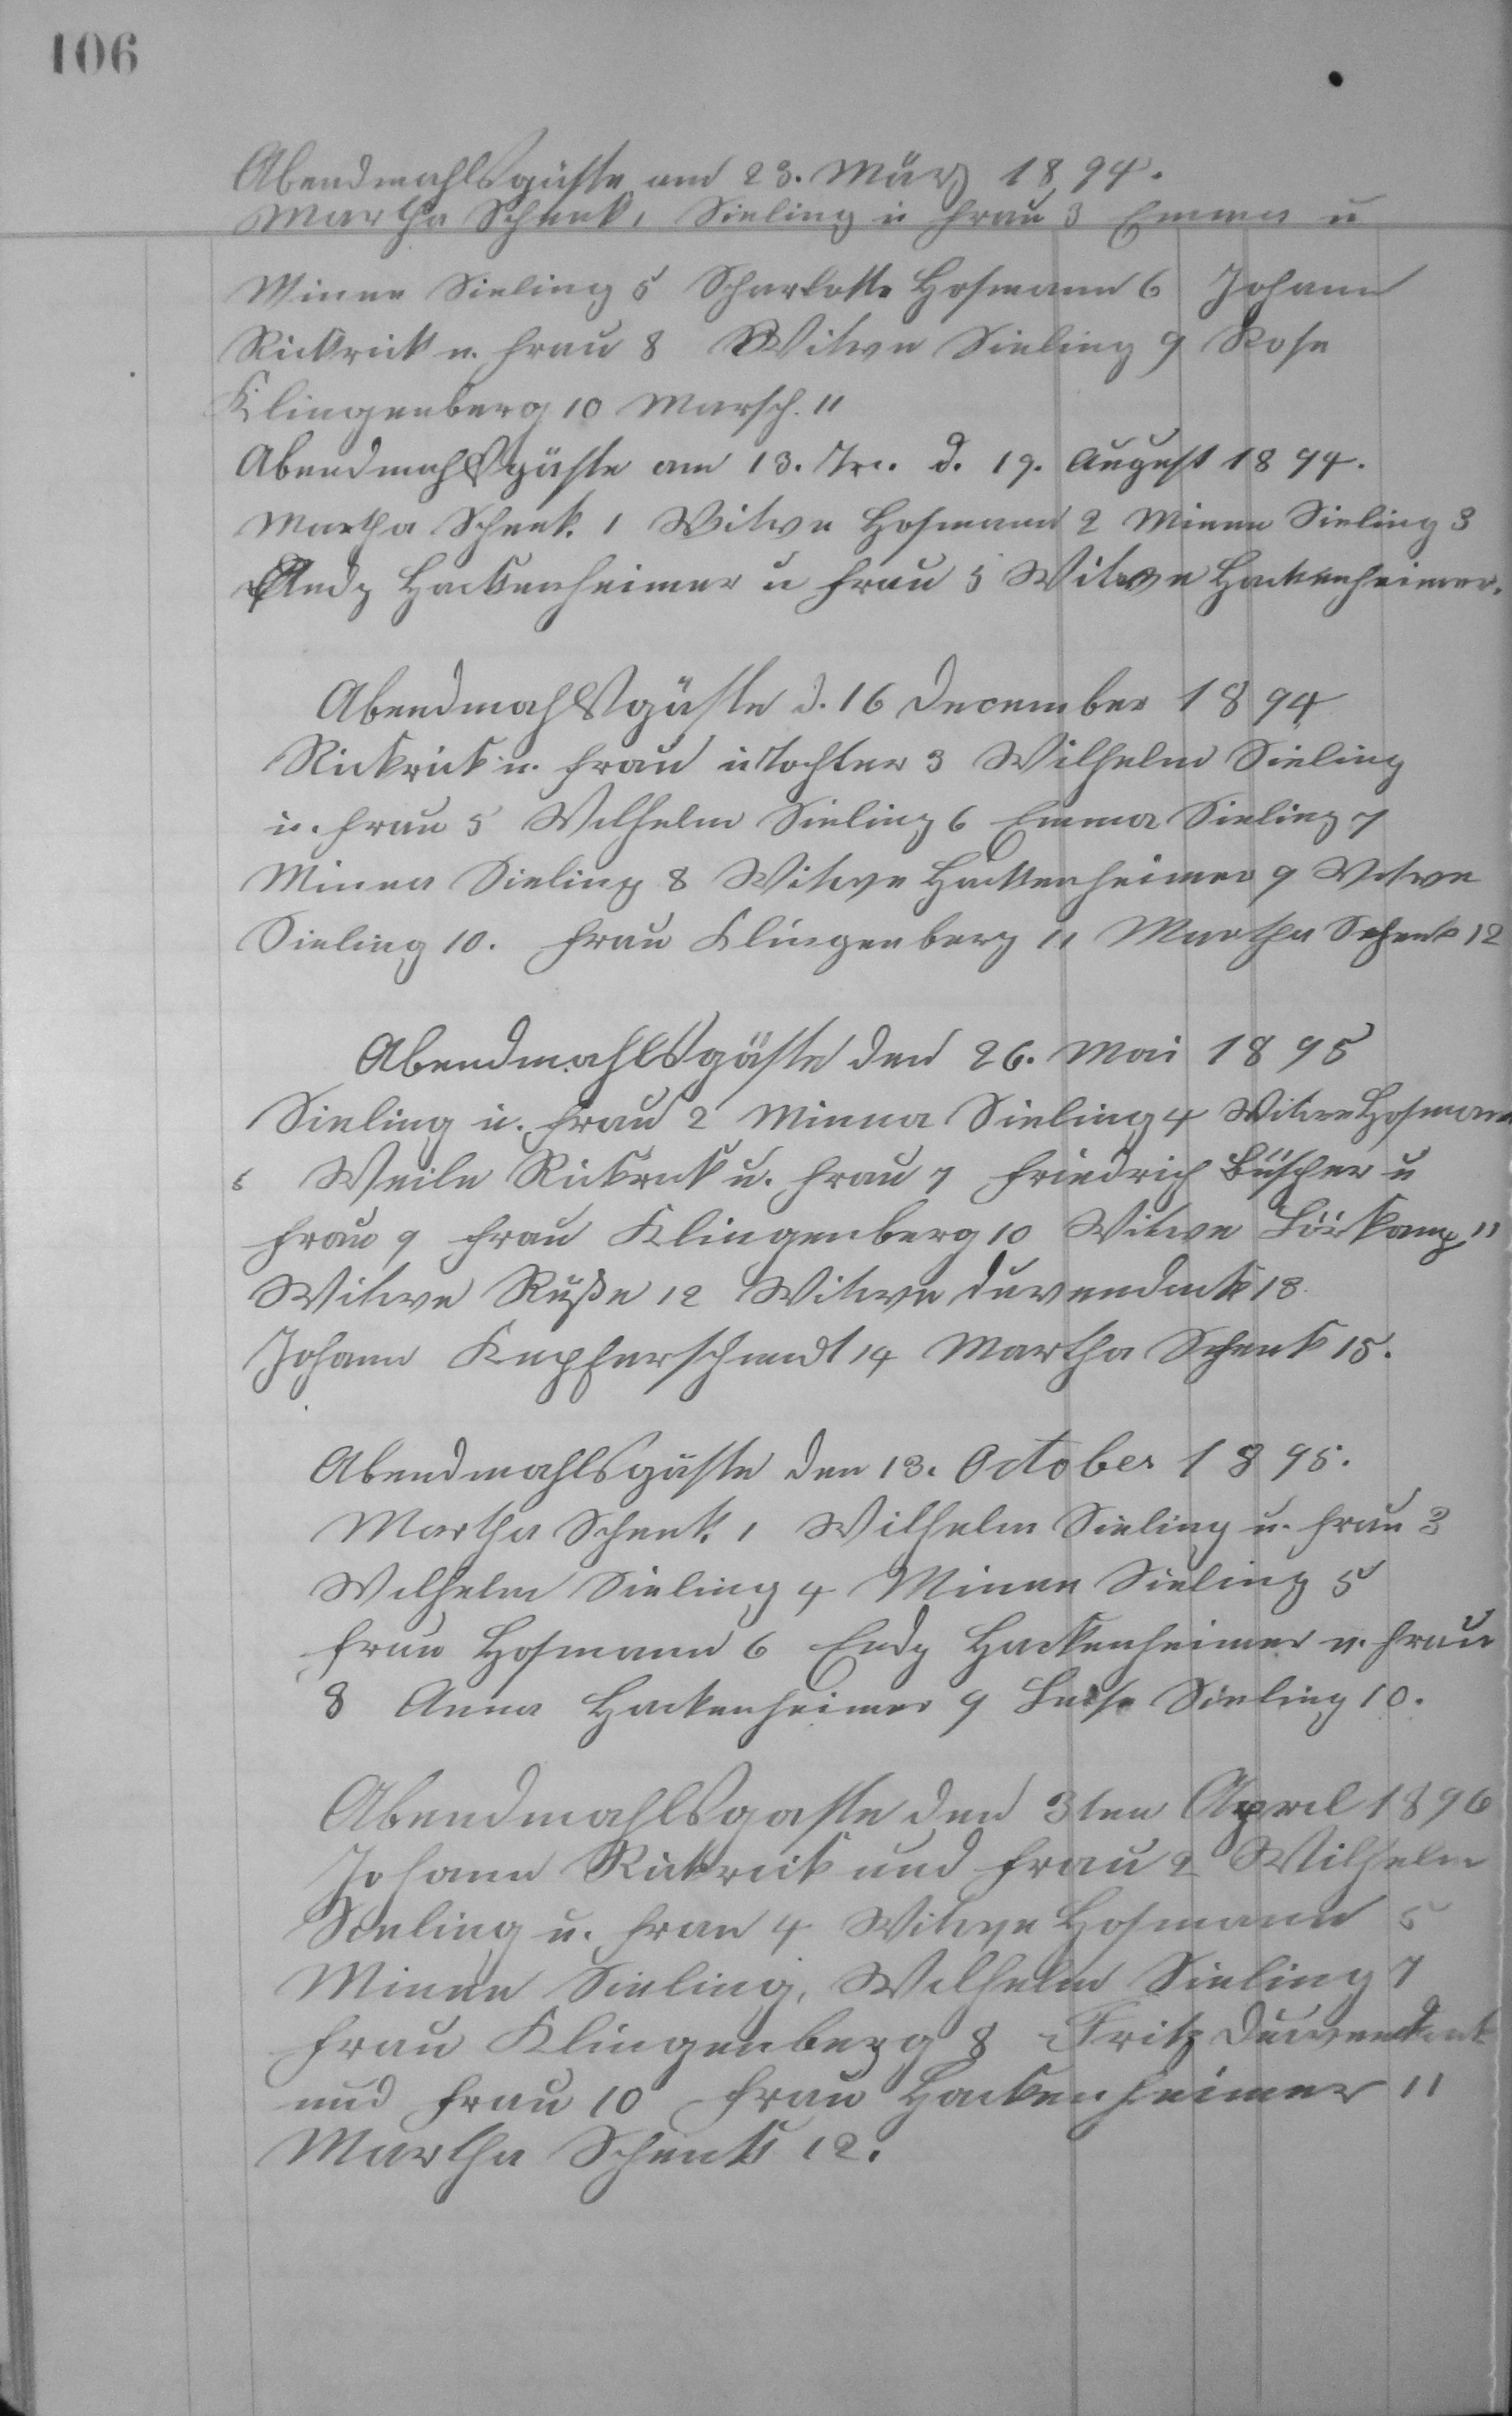 106
Abendmahlsgäste am 23. März 1894.
Martha Schenk 1 Sieling u Frau 3 Emma u
Minna Sieling 5 Scharlotte Hofmann 6 Johann
Rickrick u. Frau 8 Witwe Sieling 9 Rosa
Klingenberg 10 Marsch. 11
Abendmahlsgäste am 13. Tri. d. 19. August 1894.
Martha Schenk. 1 Witwe Hofmann 2 Minna Sieling 3
Andz Hackenheimer u Frau 5 Witwe Hackenheimer.
Abendmahlsgäste d. 16 December 1894
Rickrick u. Frau u Tochter 3 Wilhelm Sieling
u. Frau 5 Wilhelm Sieling 6 Emma Sieling 7
Minna Sieling 8 Witwe Hackenheimer 9 Witwe
Sieling 10. Frau Klingenberg 11 Martha Schenk 12
Abendmahlsgäste den 26. Mai 1895
Sieling u. Frau 2 Minna Sieling 4 Witwe Hofmann
5 Rickrick u. Frau 7 Friedrich Büscher u
Frau 9 Frau Klingenberg 10 Witwe 11
Witwe Ruße 12 Witwe Duvendack 13.
Johann Kupferschmidt 14 Martha Schenk 15.
Abendmahlsgäste den 13. October 1895.
Martha Schenk. 1 Wilhelm Sieling u. Frau 3
Wilhelm Sieling 4 Minna Sieling 5
Frau Hofmann 6 Endz Hackenheimer u. Frau
8 Anna Hackenheimer 9 Luise Sieling 10.
Abendmahlsgaste den 3ten April 1896
Johann Rickrick und Frau 2 Wilhelm
Sieling u. Frau 4 Witwe Hofmann 5
Minna Sieling, Wilhelm Sieling 7
Frau Klingenberg 8 Fritz Duvendack
und Frau 10 Frau Hackenheimer 11
Martha Schenk 12.